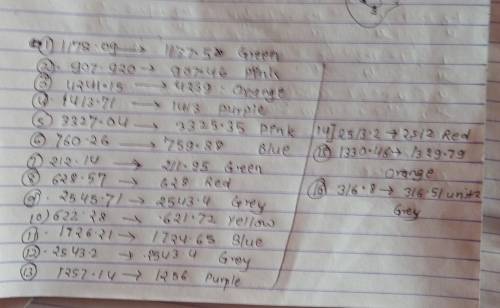 1) 1178.09 → 1177.5 Green
2) 907.920 → 907.46 Pink
3) 4241.15 → 4239 Orange
4) 1413.71 → 1413 Purple
5) 3327.04 → 3325.35 Pink
6) 760.26 → 759.88 Blue
7) 212.14 → 211.95 Green
8) 628.57 → 628 Red
9) 2545.71 → 2543.4 Grey
10) 622.28 → 621.72 Yellow
11) 1726.21 → 1724.65 Blue
12) 2543.2 → 2543.4 Grey
13) 1257.14 → 1256 Purple
14] 2513.2 → 2512 Red
15) 1330.46 → 1329.79
Orange
16) 316.8 → 316.51 units
Grey